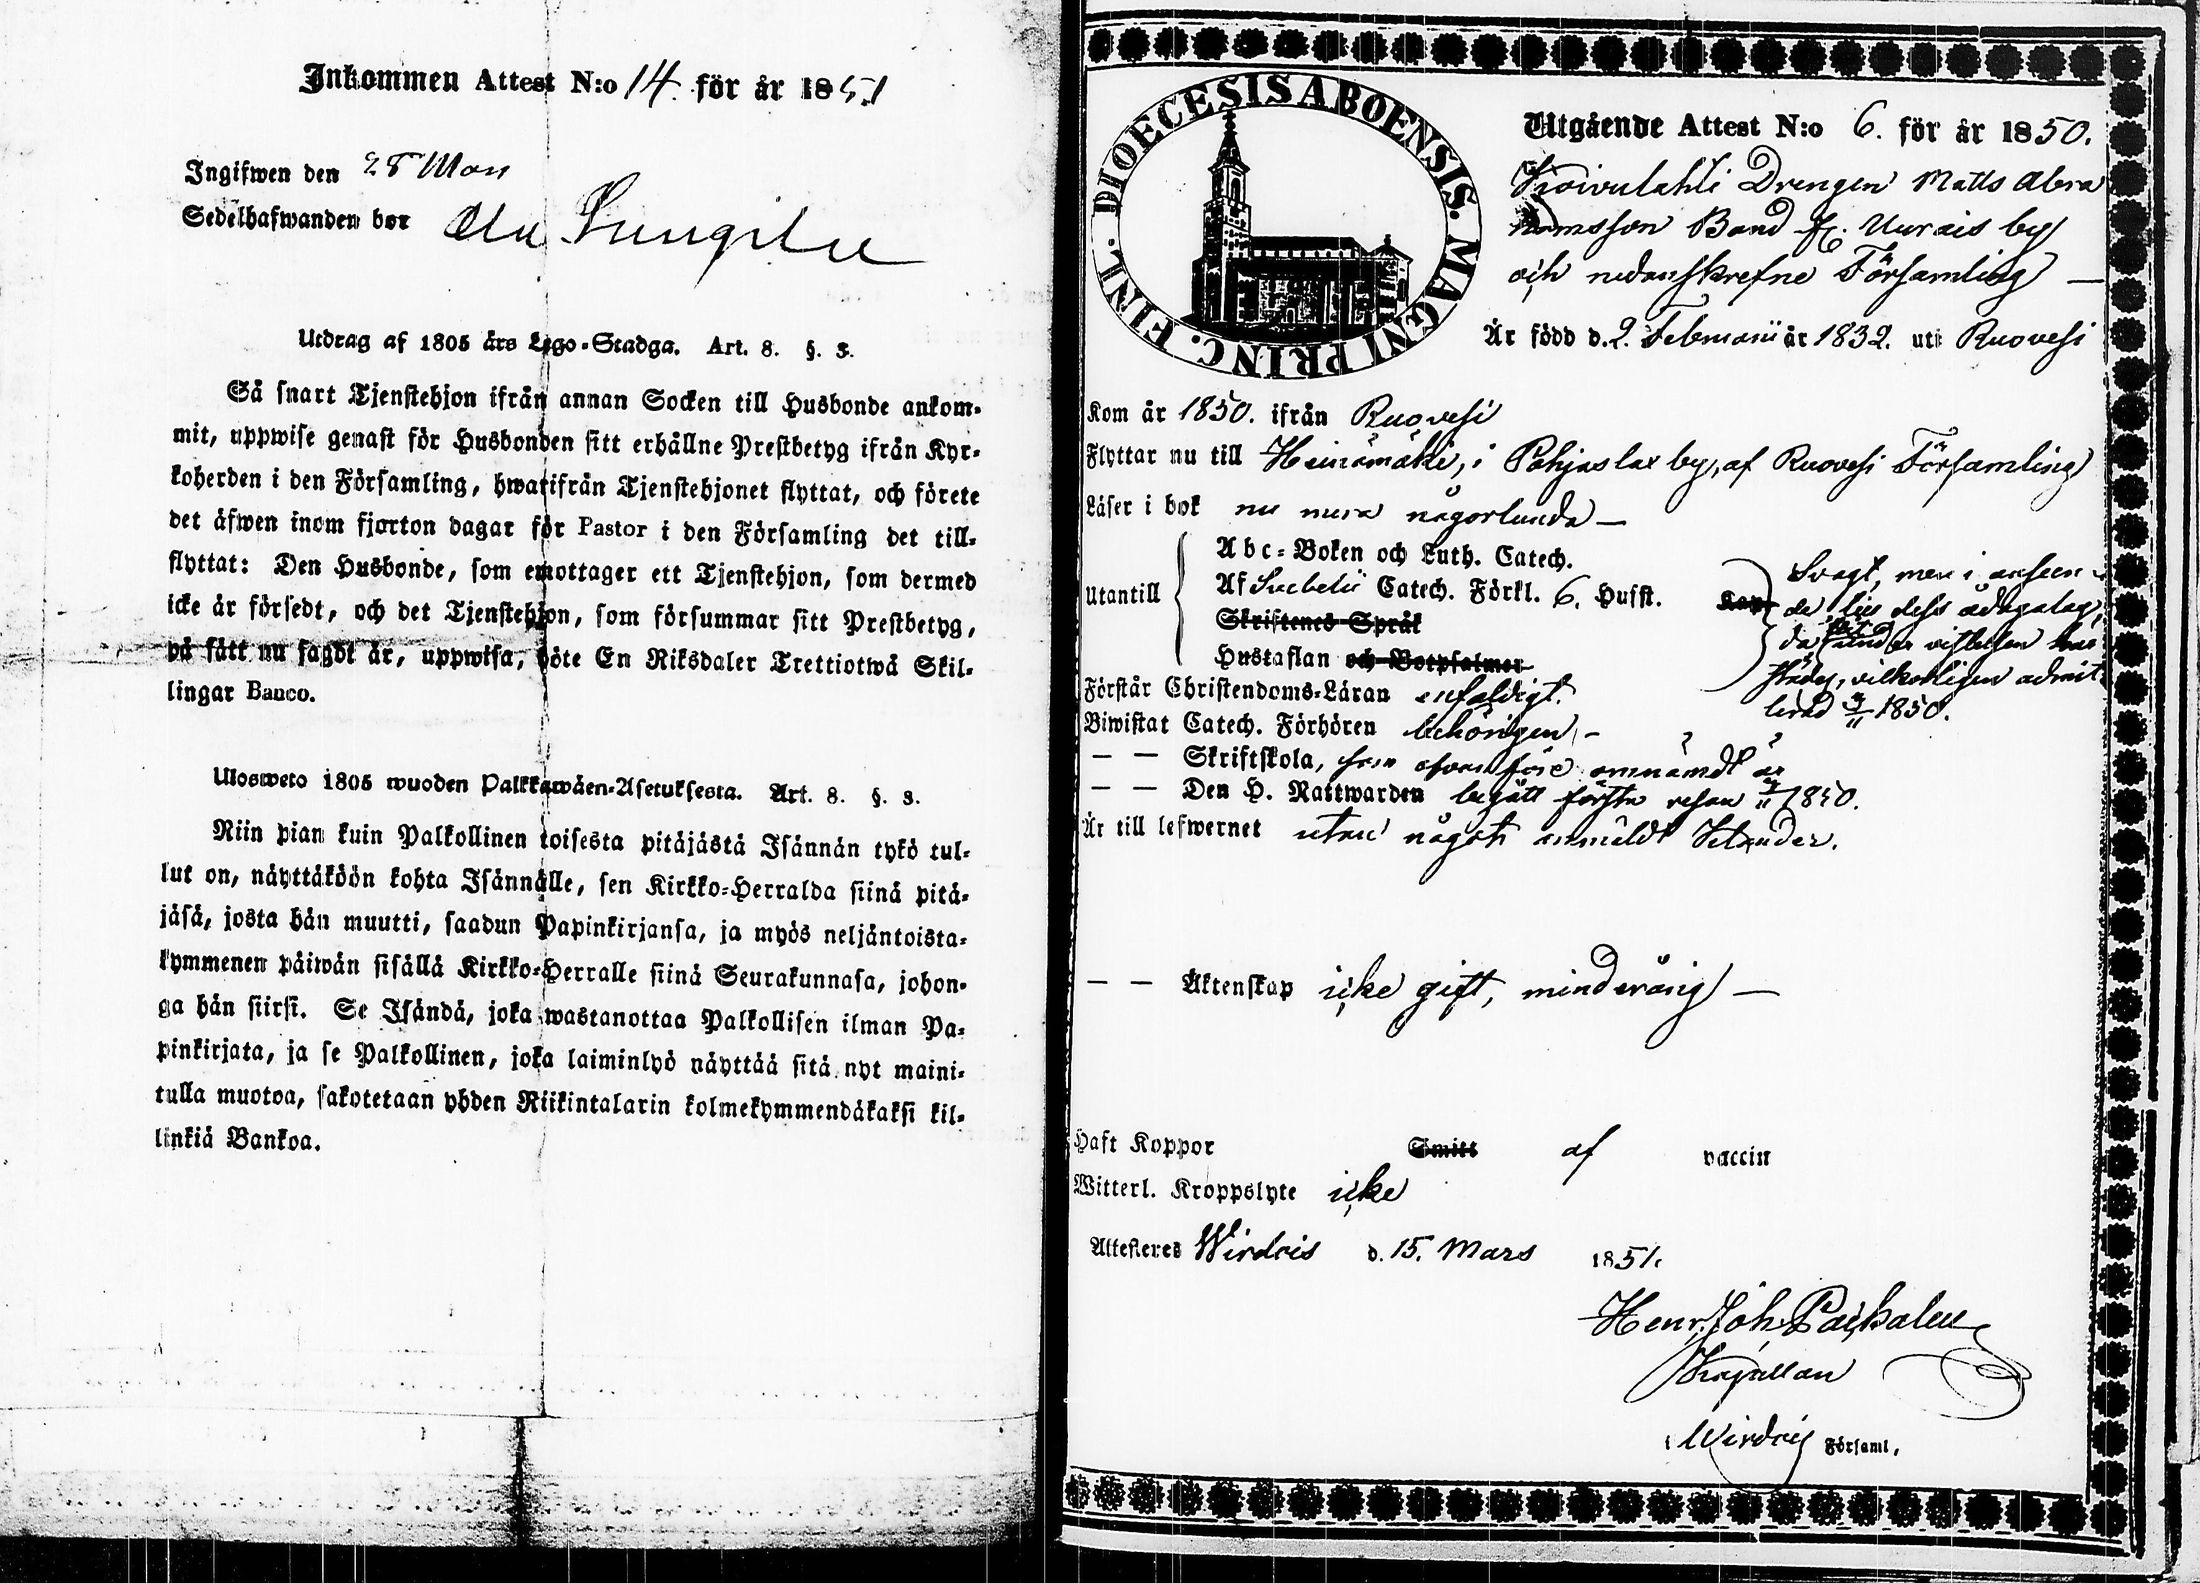 Inkommen Attest N:o 14. för år 1851
Ingifwen den 28 Mars
Sedelhafwanden bor
Utdrag af 1805 års Lego-Stadga. Art. 8. §. 3.
Så snart Tjenstehjon ifrån annan Socken till Husbonde ankom-
mit, uppwise genast för Husbonden sitt erhållne Prestbetyg ifrån Kyr-
koherden i den Församling, hwarifrån Tjenstehjonet flyttat, och förete
det äfwen inom fjorton dagar för Pastor i den Församling det till-
flyttat: Den Husbonde, som emottager ett Tjenstehjon, som dermed
icke är försedt, och det Tjenstehjon, som försummar sitt Prestbetyg,
på sätt nu sagdt är, uppwisa, böte En Riksdaler Trettiotwå Skil-
lingar Banco.
Ulosweto 1805 wuoden Palkkawäen-Asetuksesta. Art. 8. §. 3.
Niin pian kuin Palkollinen toisesta pitäjästä Isännän tykö tul-
lut on, näyttäköön kohta Isännälle, sen Kirkko-Herralda siinä pitä-
jäsä, josta hän muutti, saadun Papinkirjansa, ja myös neljäntoista-
kymmenen päiwän sisällä Kirkko-Herralle siinä Seurakunnasa, johon-
ga hän siirsi. Se Isändä, joka wastanottaa Palkollisen ilman Pa-
pinkirjata, ja se Palkollinen, joka laiminlyö näyttää sitä nyt maini-
tulla muotoa, sakotetaan yhden Riikintalarin kolmekymmendäkaksi kil-
linkiä Bankoa.
DIOECESIS ABOENSIS. MAGNI PRINC. FINL.
Utgående Attest N:o 6. för år 1850.
Koivulahti Drengen Matts Abra
hamsson Band fr. Uurais by
och nedanskrefne Församling —
Är född d. 2. Februarii år 1832. uti Ruovesi
Kom år 1850. ifrån Ruovesi
Flyttar nu till Heinämäki, i Pohjaslax by, af Ruovesi Församling
Läser i bok nu mera någorlunda —
Abc-Boken och Luth. Catech.
Utantill Af Svebelii Catech. Förkl. 6. Hufst. Kap.
Skriftenes Språk
Hustaflan och Botpsalmer
Svagt, men i anseen-
de till dess
lerad 3/11 1850.
Förstår Christendoms-Läran enfaldigt.
Biwistat Catech. Förhören behörigen —
— — Skriftskola, som ofvanföre omnämdt är
— — Den H. Nattwarden begått första resan 3/11 1850.
Är till lefwernet utan något anmäldt
— — Äktenskap icke gift, minderårig —
Haft Koppor Smitt af vaccin
Witterl. Kroppslyte icke
Attesteres Wirdois d. 15. Mars 1851.
Henr. Joh.
Kapellan
i Wirdois Församl.